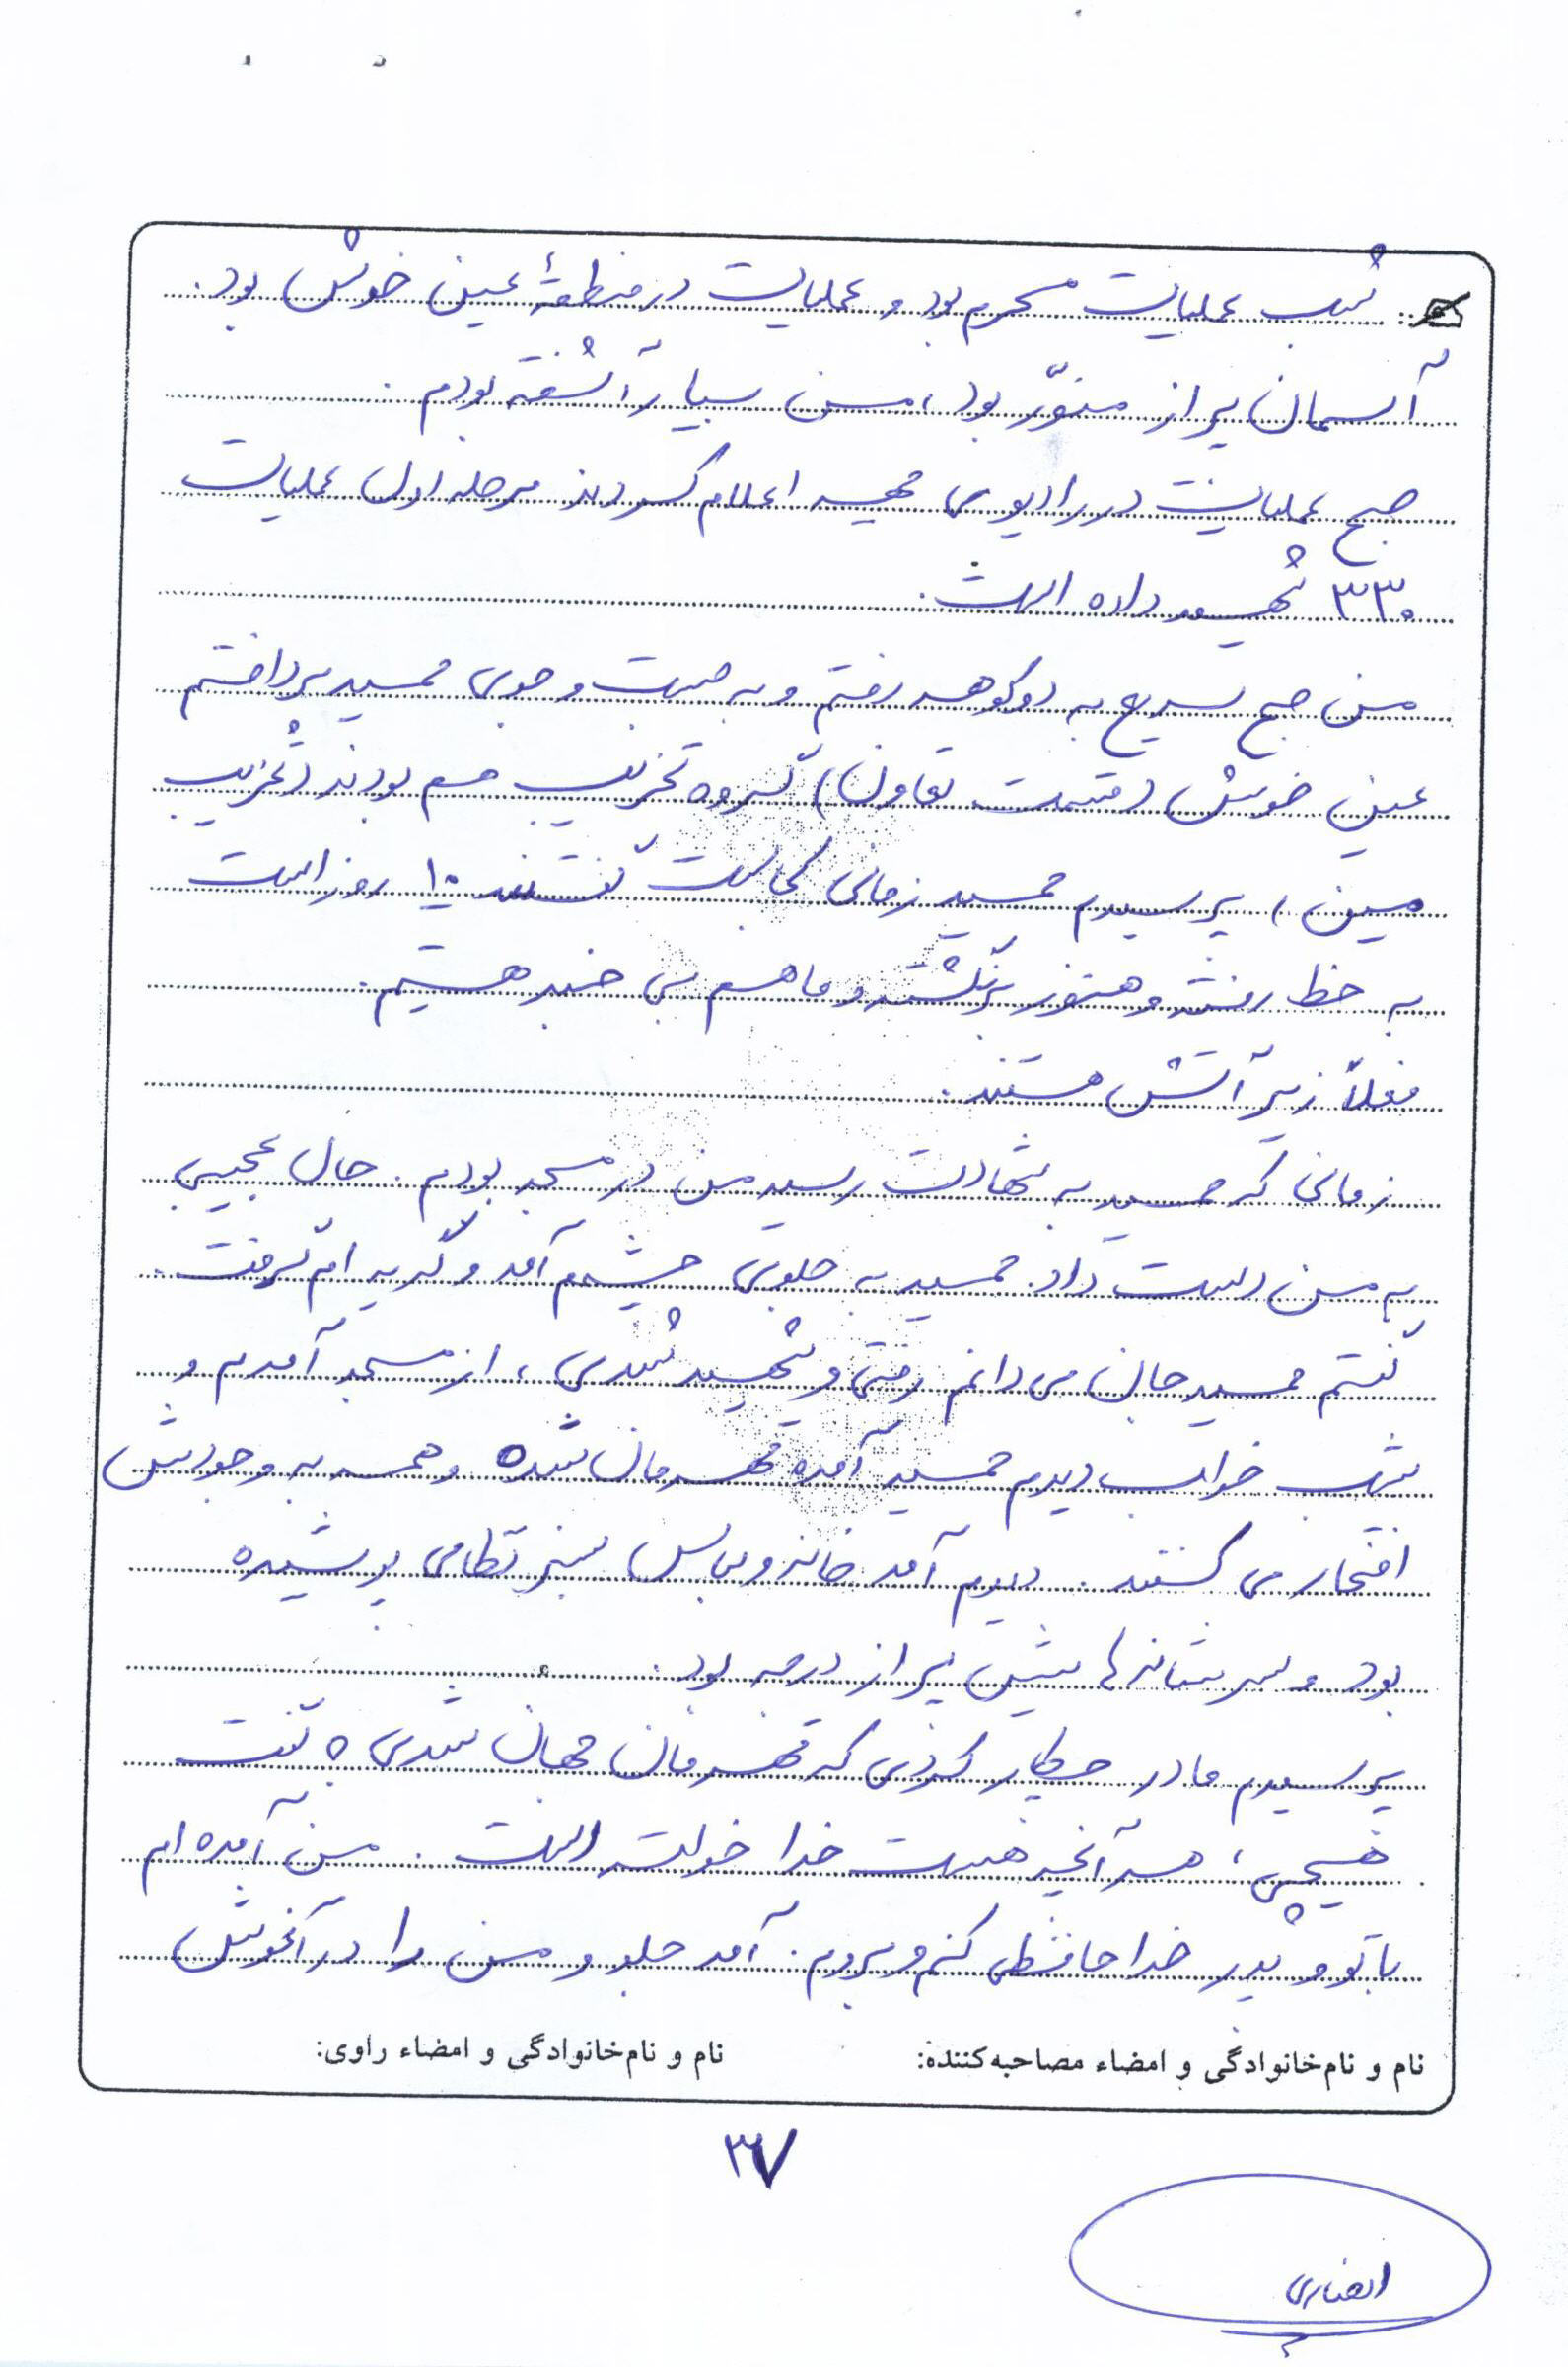 شب عملیات محرم بود و عملیات در منطقهٔ عین خوش بود.
آسمان پر از منوّر بود، من بسیار آشفته بودم.
صبح عملیات در رادیوی مهم اعلام کردند مرحله اول عملیات
۳۳۰ شهید داده است.
من صبح سریع به دوکوهه رفتم و به جست و جوی حمید پرداختم
عین خوش (قسمت تعاون) گروه تخریب هم بودند (تخریب
مین) پرسیدم حمید زمانی کجاست گفتند ۱۰ روز است
به خط رفته و هنوز برنگشته و ما هم بی خبر هستیم.
فعلاً زیر آتش هستند.
زمانی که حمید به شهادت رسید من در مسجد بودم. حال عجیبی
به من دست داد. حمید به جلوی چشمم آمد و گریه ام گرفت.
گفتم حمید جان می دانم رفتی و شهید شدی، از مسجد آمدم و
شب خواب دیدم حمید آمده قهرمان شده و همه به وجودش
افتخار می کنند. دیدم آمد خانه و لباس سبز نظامی پوشیده
بود و سر شانه هایش پر از درجه بود.
پرسیدم مادر چطار کردی که قهرمان جهان شدی؟ گفت
هیچی، هر آنچه هست خدا خواسته است. من آمده ام
با تو و پدر خداحافظی کنم و بروم. آمد جلو و من را در آغوش
نام و نام‌خانوادگی و امضاء مصاحبه‌کننده: نام و نام‌خانوادگی و امضاء راوی:
۳۷
انصاری